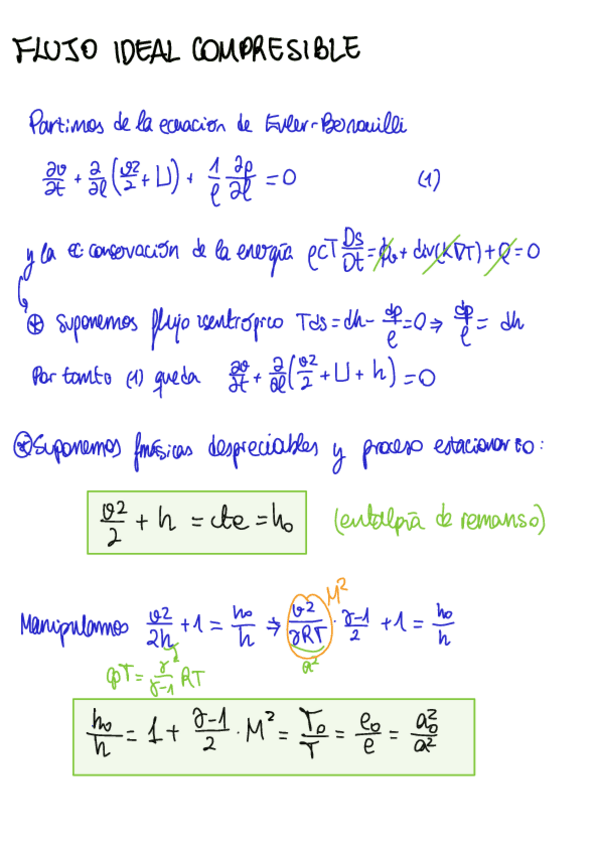 FLUJO IDEAL COMPRESIBLE
Partimos de la ecuación de Euler-Bernouilli
∂v/∂t + ∂/∂l (v²/2 + U) + 1/ρ ∂p/∂l = 0 (1)
y la ec conservación de la energía ρcT Ds/Dt = ϕ_v + div(K∇T) + Q = 0
⊕ Suponemos flujo isentrópico Tds = dh - dp/ρ = 0 ⇒ dp/ρ = dh
Por tanto (1) queda ∂v/∂t + ∂/∂l (v²/2 + U + h) = 0
⊛ Suponemos fmásicas despreciables y proceso estacionario:
v²/2 + h = cte = h₀ (entalpía de remanso)
M²
Manipulamos v²/2h + 1 = h₀/h ⇒ v²/γRT · γ-1/2 + 1 = h₀/h
a²
cpT = γ/γ-1 RT
h₀/h = 1 + γ-1/2 · M² = T₀/T = e₀/e = a₀²/a²